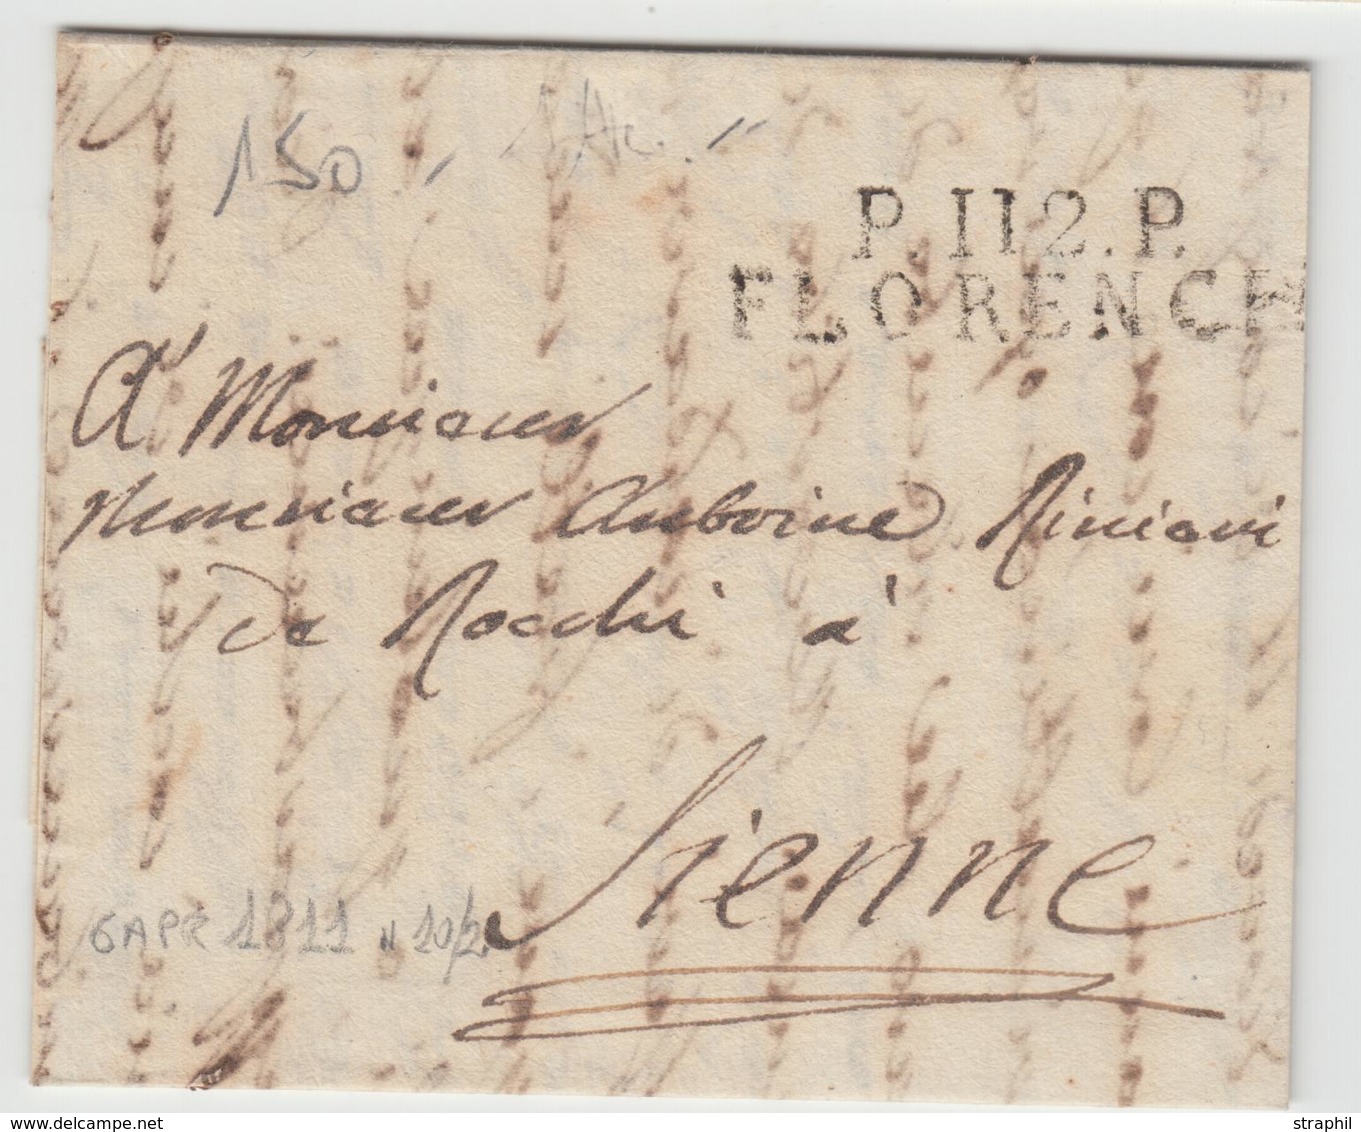 150
P. 112. P.
FLORENCE
A Monsieur
Monsieur Antoine
de Rocchi à
Sienne
6 APR 1811 " 10/2
www.delcampe.net
straphil